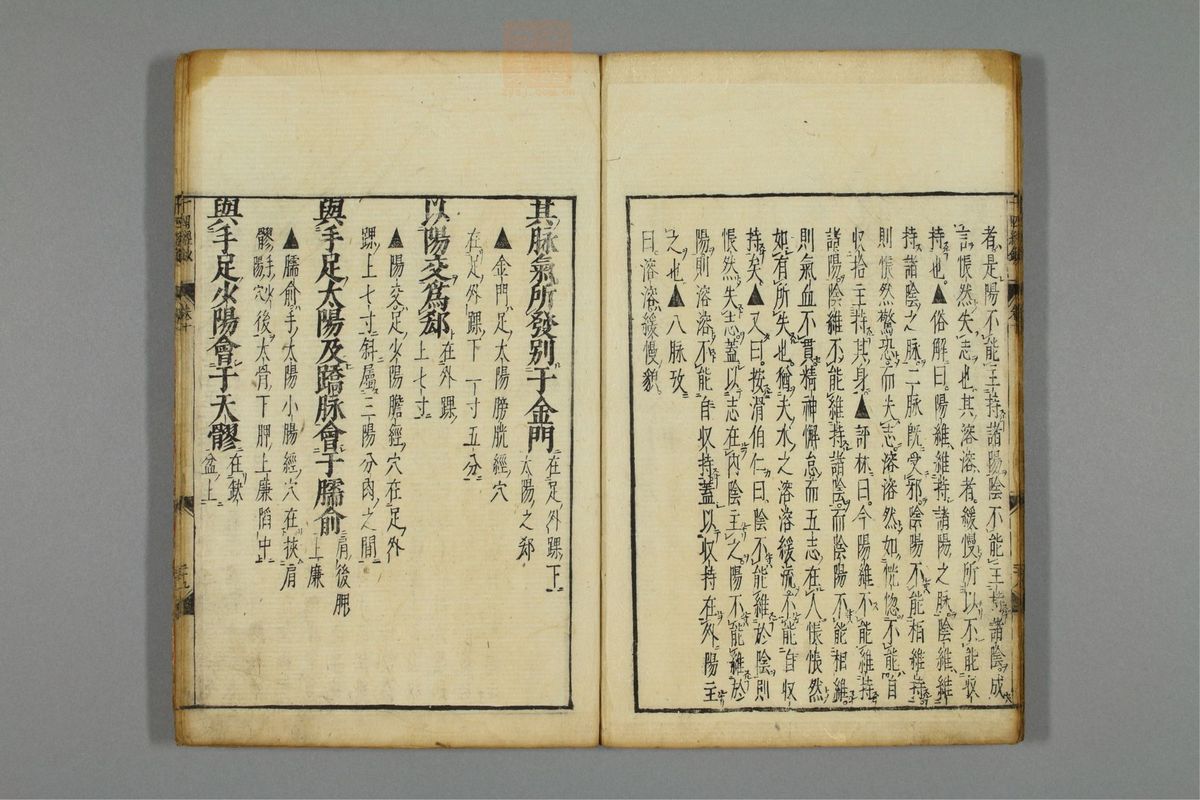 者是陽不能主持諸陽陰不能主持諸陰成
言悵然失志也其溶溶者緩慢所以不能収
持也▲俗解曰陽維維持諸陽之脉陰維維
持諸陰之脉二脉旣受邪陰陽不能相維持
則悵然驚恐而失志溶溶然如恍惚不能自
収拾主持其身▲評林曰今陽維不能維持
諸陽陰維不能維持諸陰而陰陽不能相維
則氣血不貫精神懈怠而五志在人悵悵然
如有所失也猶夫水之溶溶緩流不能自収
持矣▲又曰按滑伯仁曰陰不能維於陰則
悵然失志蓋以志在內陰主之陽不能維於
陽則溶溶不能自収持蓋以収持在外陽主
之也▲八脉攷
曰溶溶緩慢貌
其脉氣所發别于金門在足外踝下太陽之郄
▲金門足太陽膀胱經穴
在足外踝下一寸五分
以陽交爲郄在外踝上七寸
▲陽交足少陽膽經穴在足外
踝上七寸斜屬三陽分肉之間
與手足太陽及蹻脉會于臑俞肩後胛上廉
▲臑俞手太陽小腸經穴在挾肩
髎手少陽穴後大骨下胛上廉陷中
與手足少陽會于天髎在缺盆上